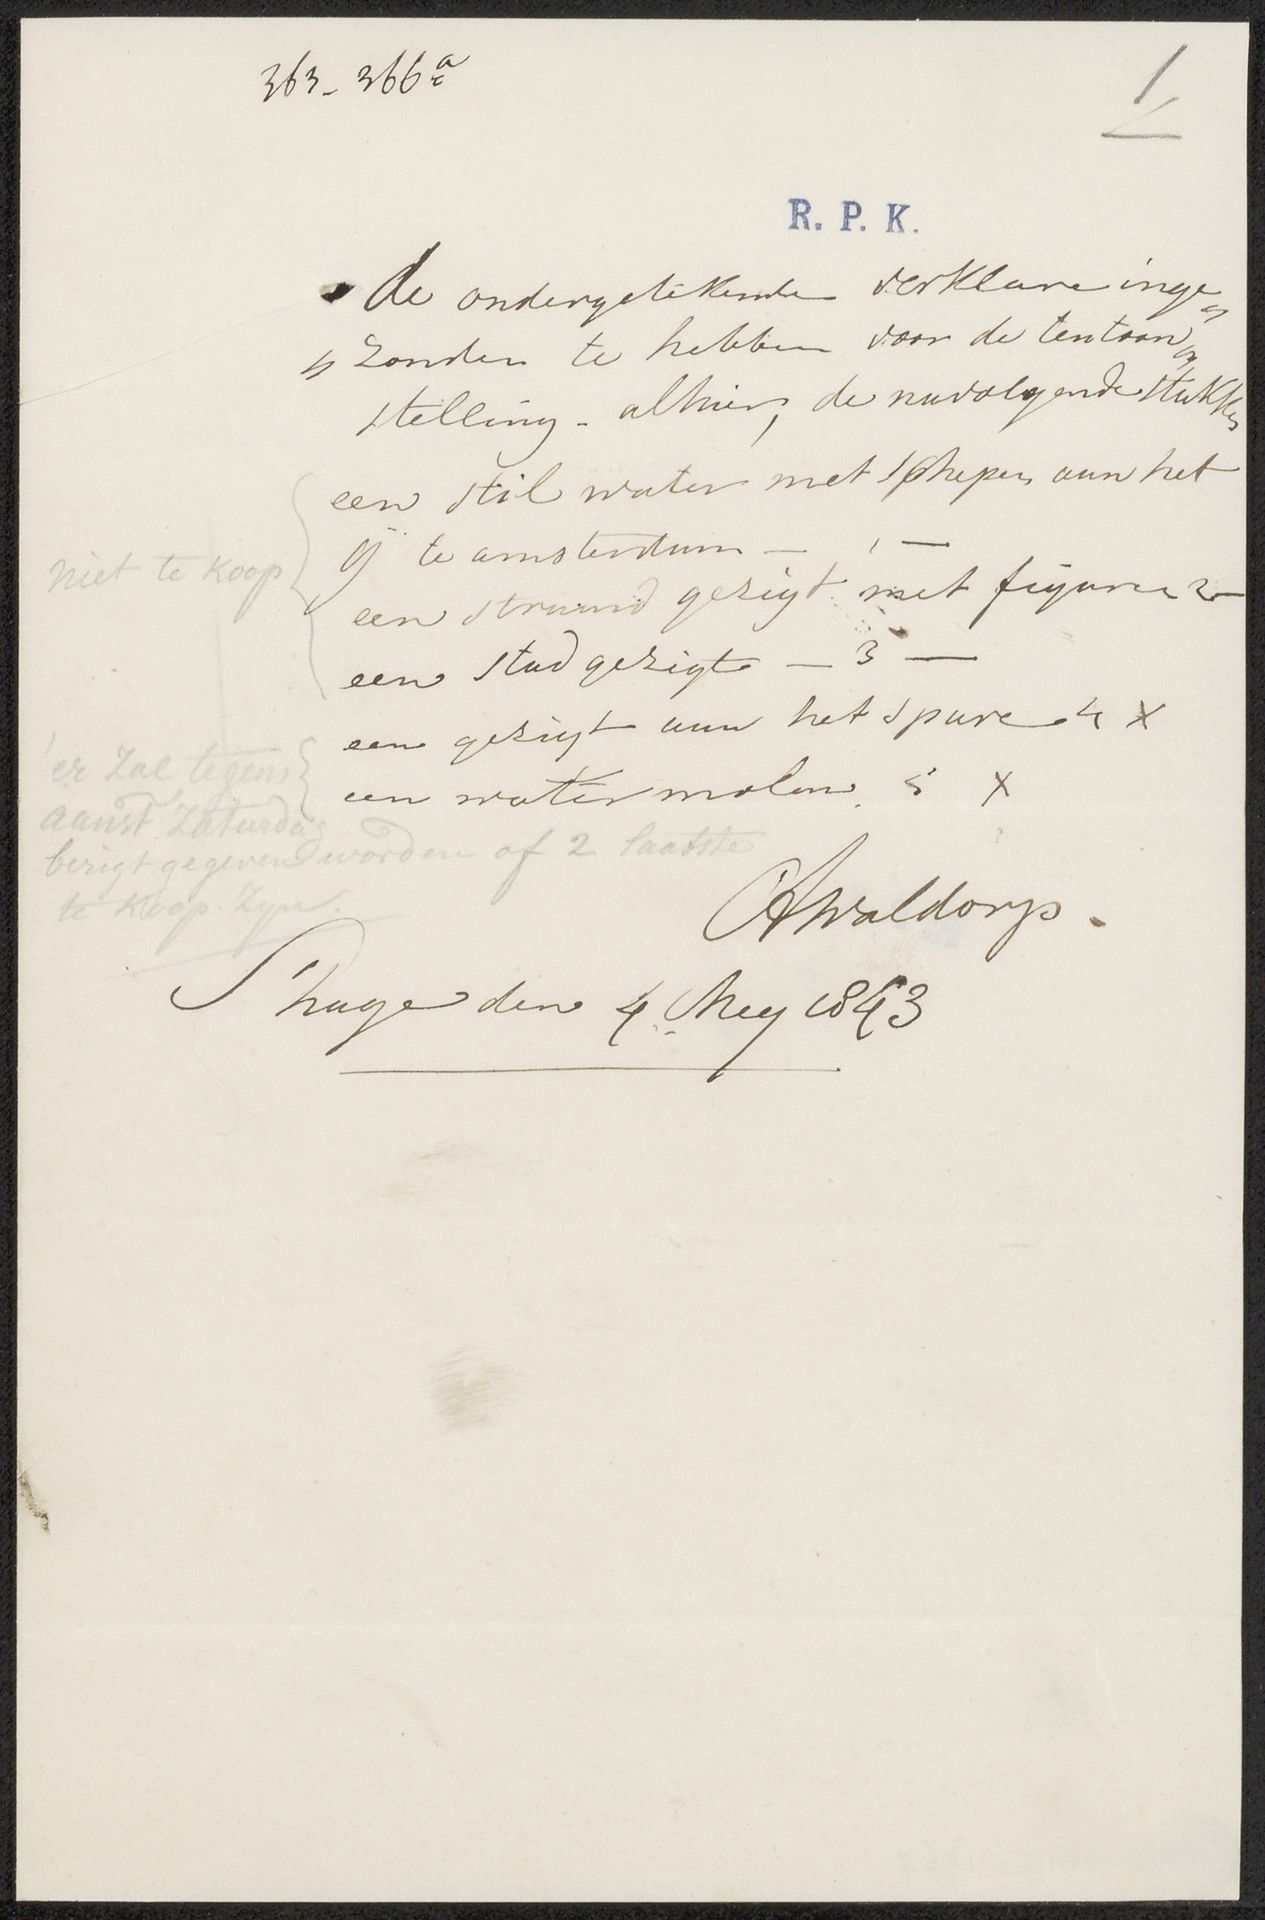 363 - 366a
1
R. P. K.
de ondergetekende verklare inge=
=zonden te hebben voor de tentoon=
stelling - alhier, de navolgende stukken
een stil water met schepen aan het
ij te amsterdam - 1 -
niet te koop
een strand gezigt met figuren 2 -
een stad gezigt - 3 -
een gezigt aan het spare 4 x
een water molen. 5 x
er zal tegens
aanst. Zaturdag
berigt gegeven worden of 2 laatste
te koop Zyn.
A Waldorp.
S'hage den 4 Mey 1843